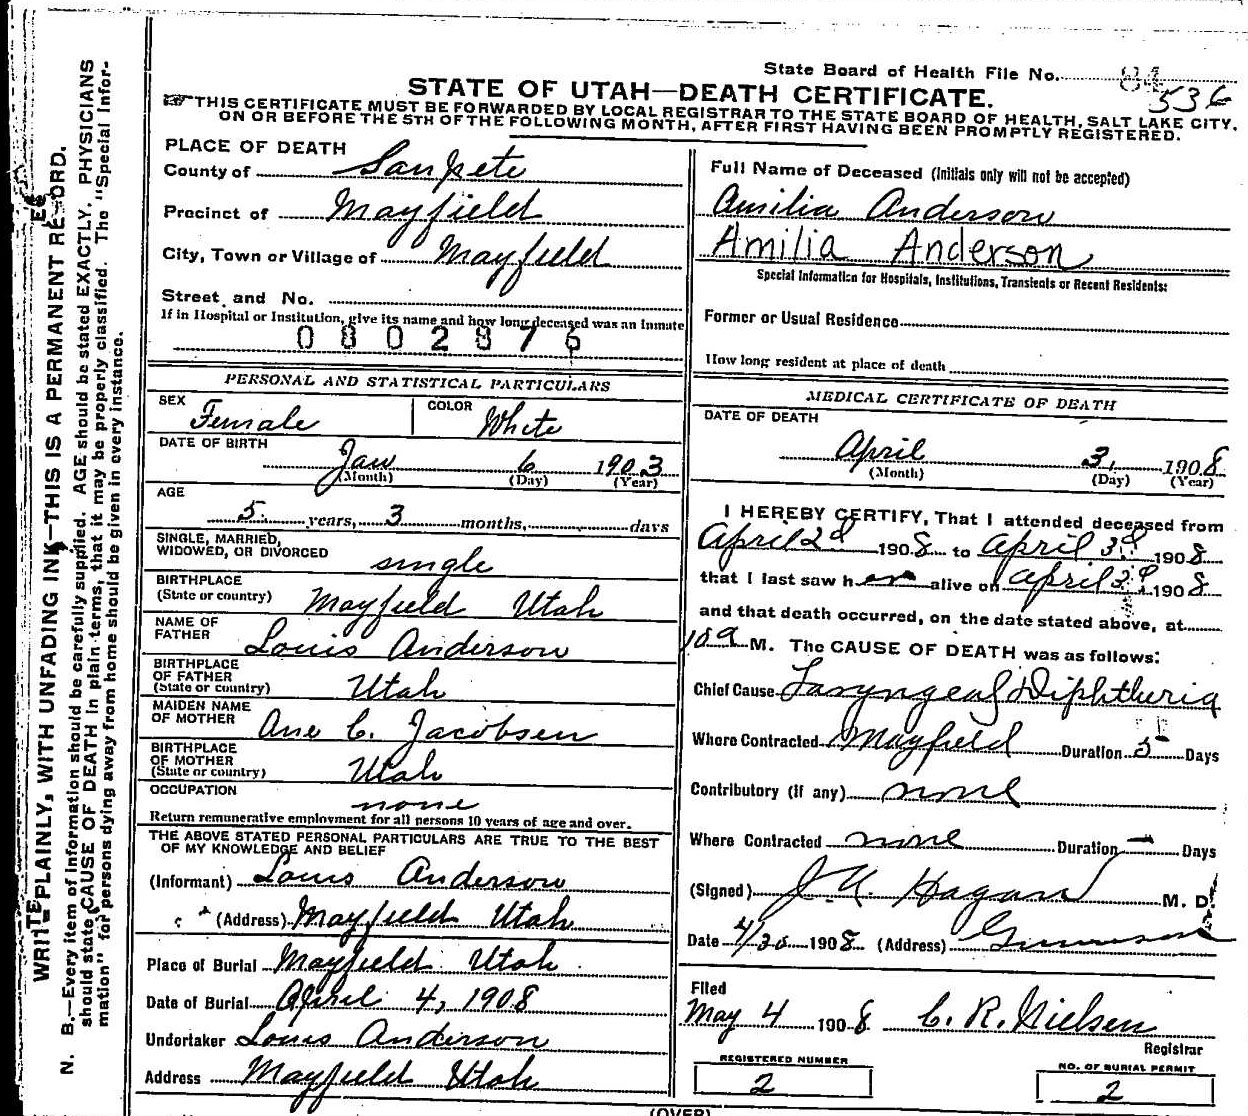 State Board of Health File No. 84
536
STATE OF UTAH—DEATH CERTIFICATE.
THIS CERTIFICATE MUST BE FORWARDED BY LOCAL REGISTRAR TO THE STATE BOARD OF HEALTH, SALT LAKE CITY,
ON OR BEFORE THE 5TH OF THE FOLLOWING MONTH, AFTER FIRST HAVING BEEN PROMPTLY REGISTERED.
WRITE PLAINLY, WITH UNFADING INK—THIS IS A PERMANENT RECORD.
N. B.—Every item of information should be carefully supplied. AGE should be stated EXACTLY. PHYSICIANS
should state CAUSE OF DEATH in plain terms, that it may be properly classified. The "Special Infor-
mation" for persons dying away from home should be given in every instance.
PLACE OF DEATH
County of Sanpete
Precinct of Mayfield
City, Town or Village of Mayfield
Street and No.
If in Hospital or Institution, give its name and how long deceased was an Inmate
0802876
PERSONAL AND STATISTICAL PARTICULARS
SEX Female COLOR White
DATE OF BIRTH
Jan 6 1903
(Month) (Day) (Year)
AGE
5 years, 3 months, days
SINGLE, MARRIED,
WIDOWED, OR DIVORCED single
BIRTHPLACE
(State or country) Mayfield Utah
NAME OF
FATHER Louis Anderson
BIRTHPLACE
OF FATHER
(State or country) Utah
MAIDEN NAME
OF MOTHER Ane C. Jacobsen
BIRTHPLACE
OF MOTHER
(State or country) Utah
OCCUPATION
none
Return remunerative employment for all persons 10 years of age and over.
THE ABOVE STATED PERSONAL PARTICULARS ARE TRUE TO THE BEST
OF MY KNOWLEDGE AND BELIEF
(Informant) Louis Anderson
(Address) Mayfield Utah
Place of Burial Mayfield Utah
Date of Burial April 4, 1908
Undertaker Louis Anderson
Address Mayfield Utah
Full Name of Deceased (Initials only will not be accepted)
Amilia Anderson
Amilia Anderson
Special Information for Hospitals, Institutions, Transients or Recent Residents:
Former or Usual Residence
How long resident at place of death
MEDICAL CERTIFICATE OF DEATH
DATE OF DEATH
April 3, 1908
(Month) (Day) (Year)
I HEREBY CERTIFY, That I attended deceased from
April 2d 1908 to April 3d 1908
that I last saw her alive on April 3d 1908
and that death occurred, on the date stated above, at
10 a M. The CAUSE OF DEATH was as follows:
Chief Cause Laryngeal Diphtheria
Where Contracted Mayfield Duration 5 Days
Contributory (if any) none
Where Contracted none Duration — Days
(Signed) J. A. Hagan M. D.
Date 4/30 1908 (Address) Gunnison
Filed
May 4 1908 C. R. Nielsen
Registrar
REGISTERED NUMBER
2
NO. OF BURIAL PERMIT
2
(OVER)